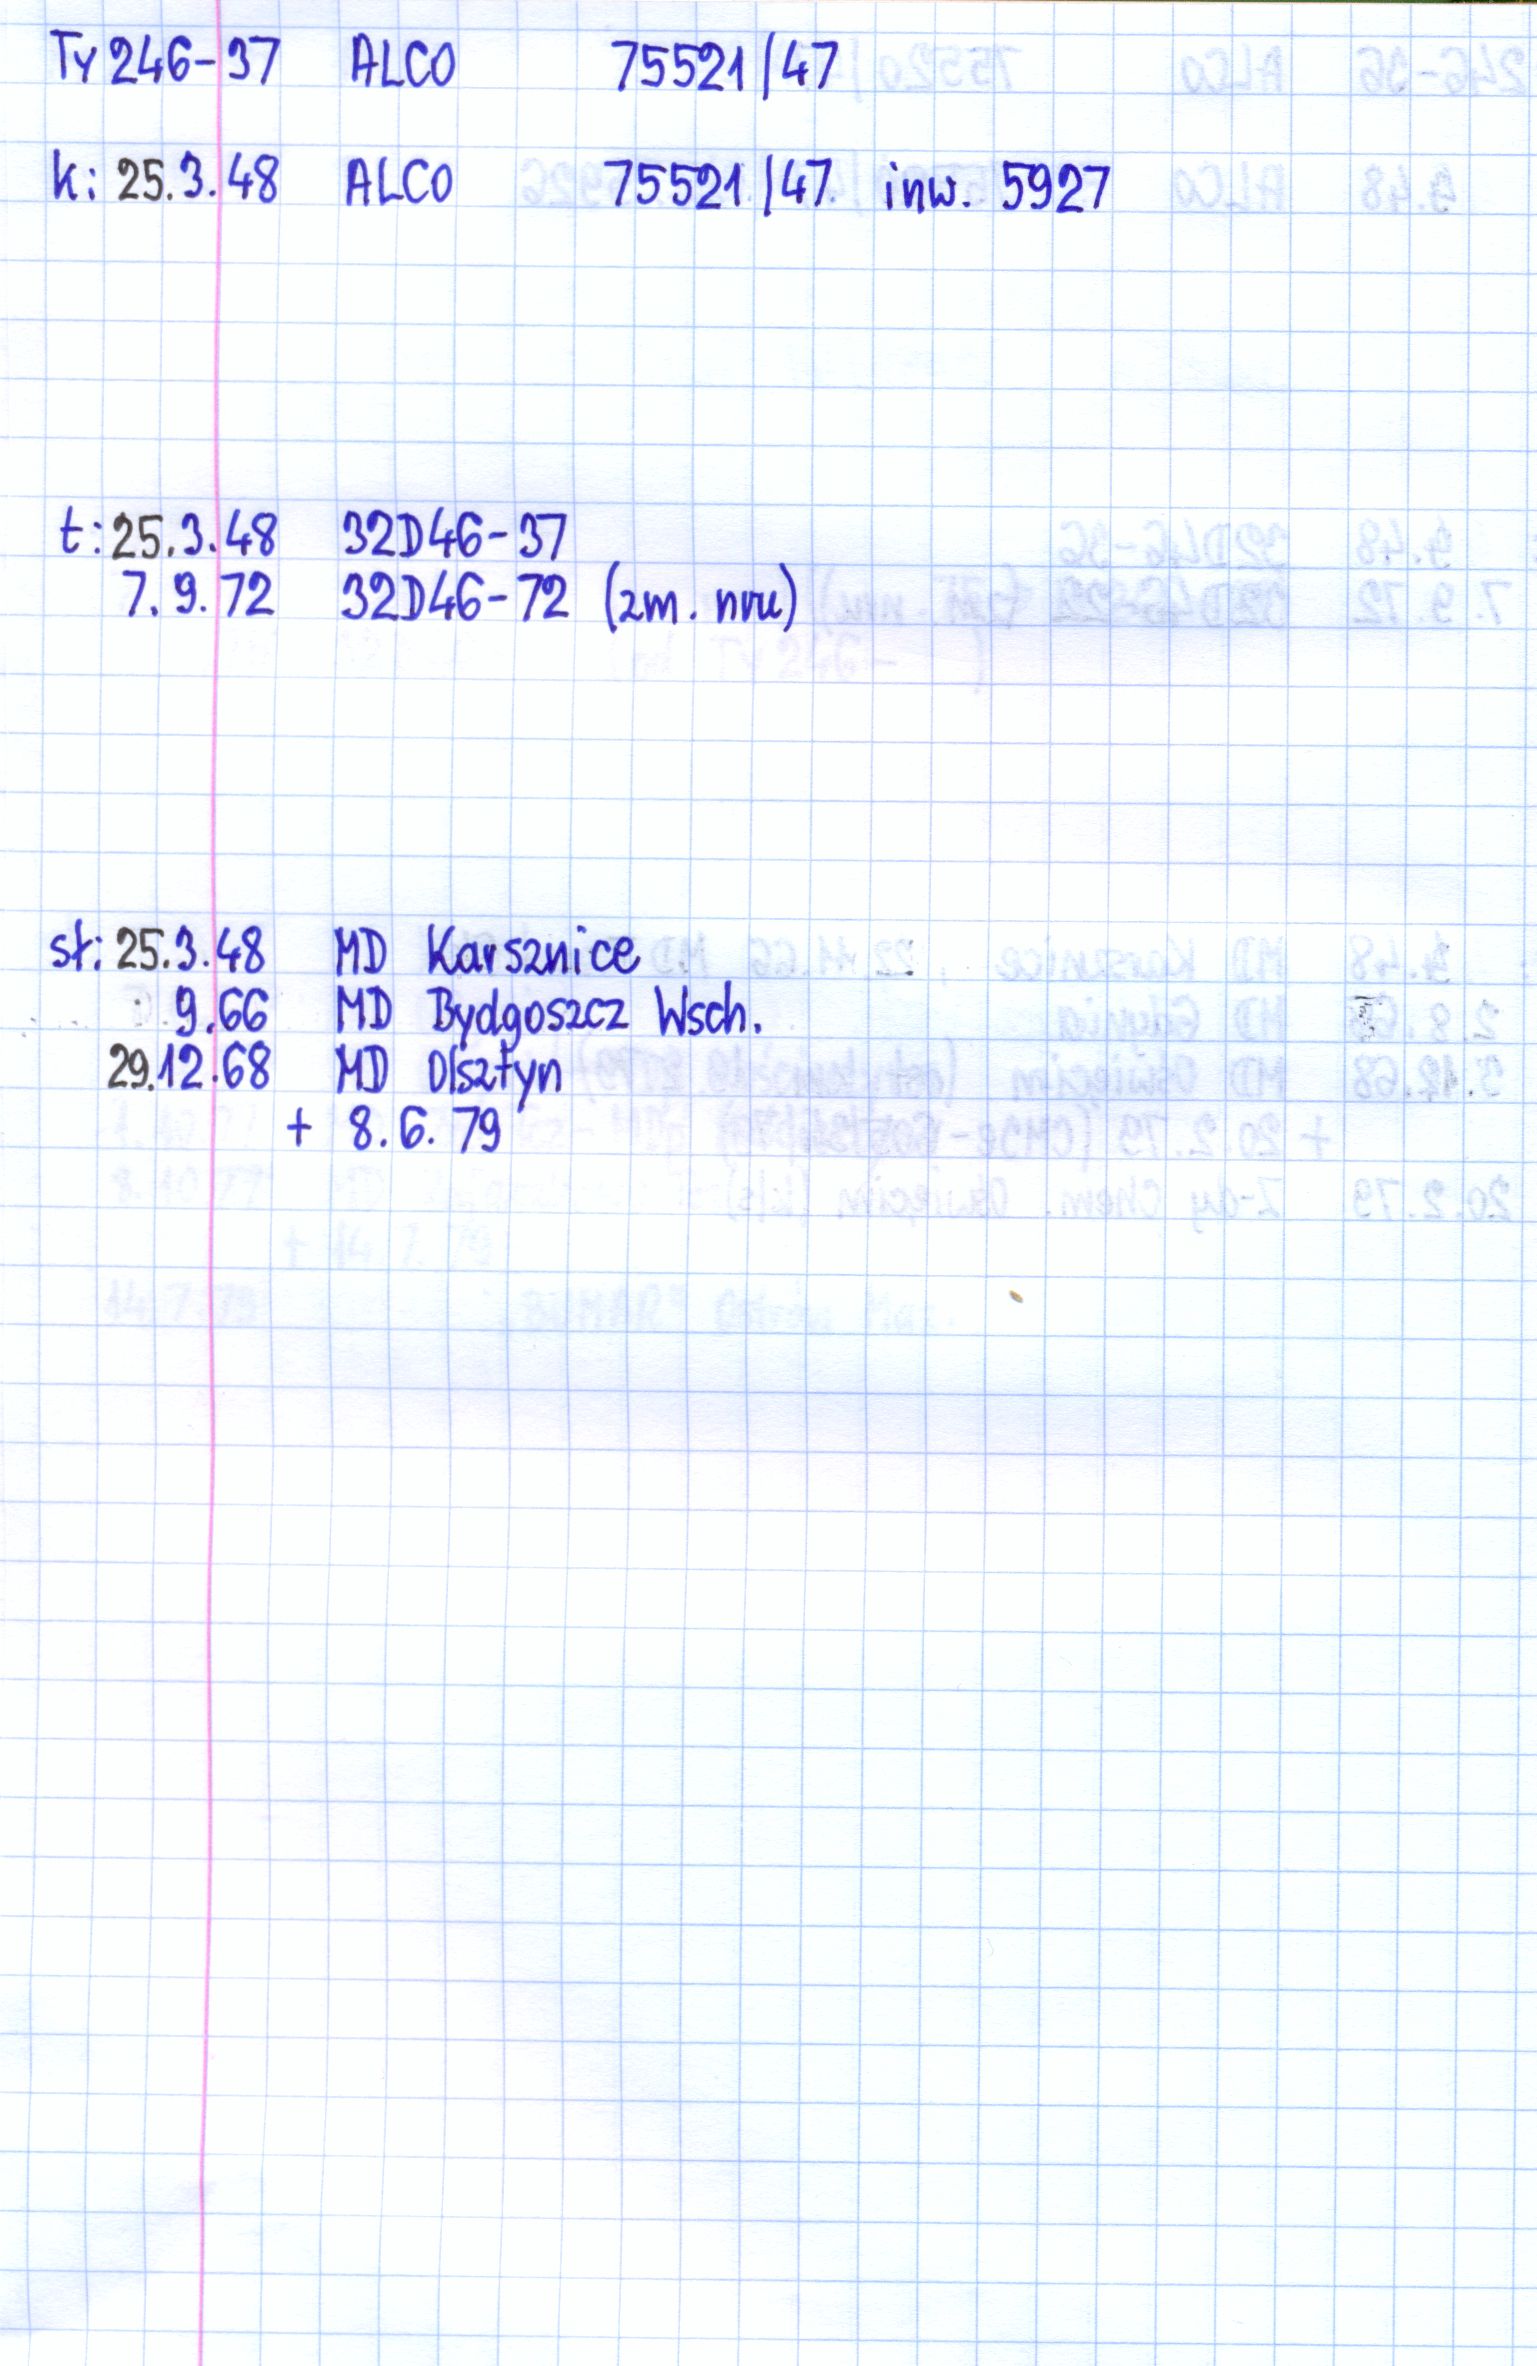 Ty 246-37 ALCO 75521/47
k: 25.3.48 ALCO 75521/47 inw. 5927
t: 25.3.48 32D46-37
7.9.72 32D46-72 (zm. nru)
st: 25.3.48 MD Karsznice
9.66 MD Bydgoszcz Wsch.
29.12.68 MD Olsztyn
+ 8.6.79